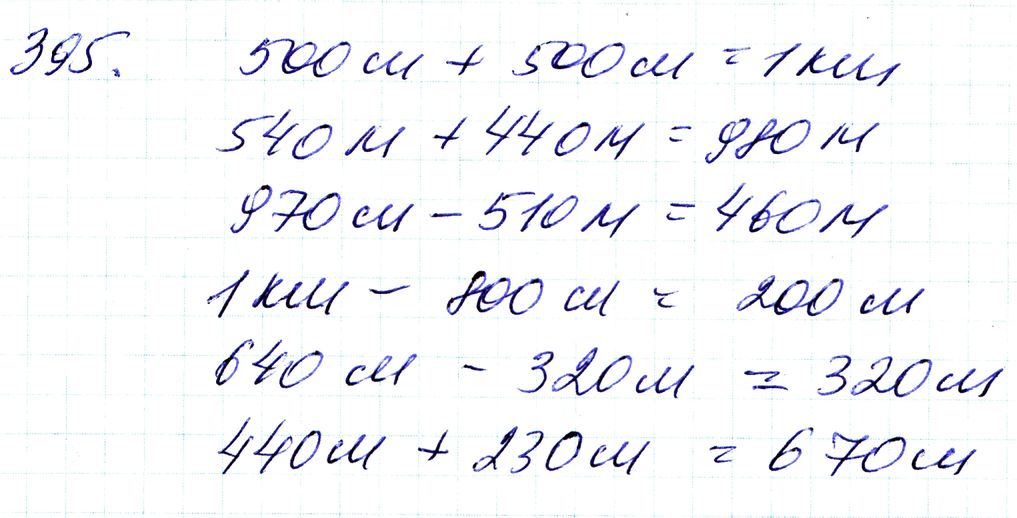 395. 500 м + 500 м = 1 км
540 м + 440 м = 980 м
970 м - 510 м = 460 м
1 км - 800 м = 200 м
640 м - 320 м = 320 м
440 м + 230 м = 670 м